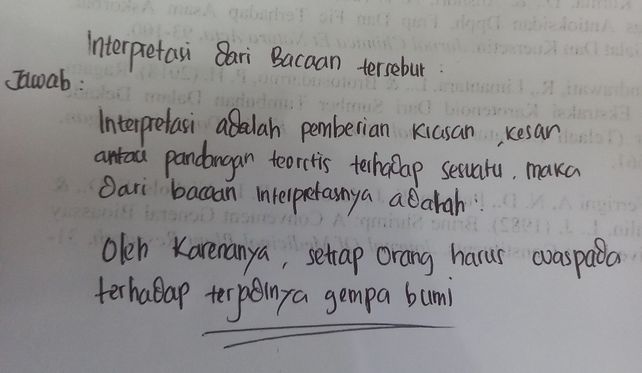 Interpretasi dari Bacaan tersebut :
Jawab :
Interpretasi adalah pemberian kiasan, kesan
antau pandangan teoretis terhadap sesuatu, maka
dari bacaan interpretasnya adalah :
Oleh karenanya, setiap orang harus waspada
terhadap terjadinya gempa bumi